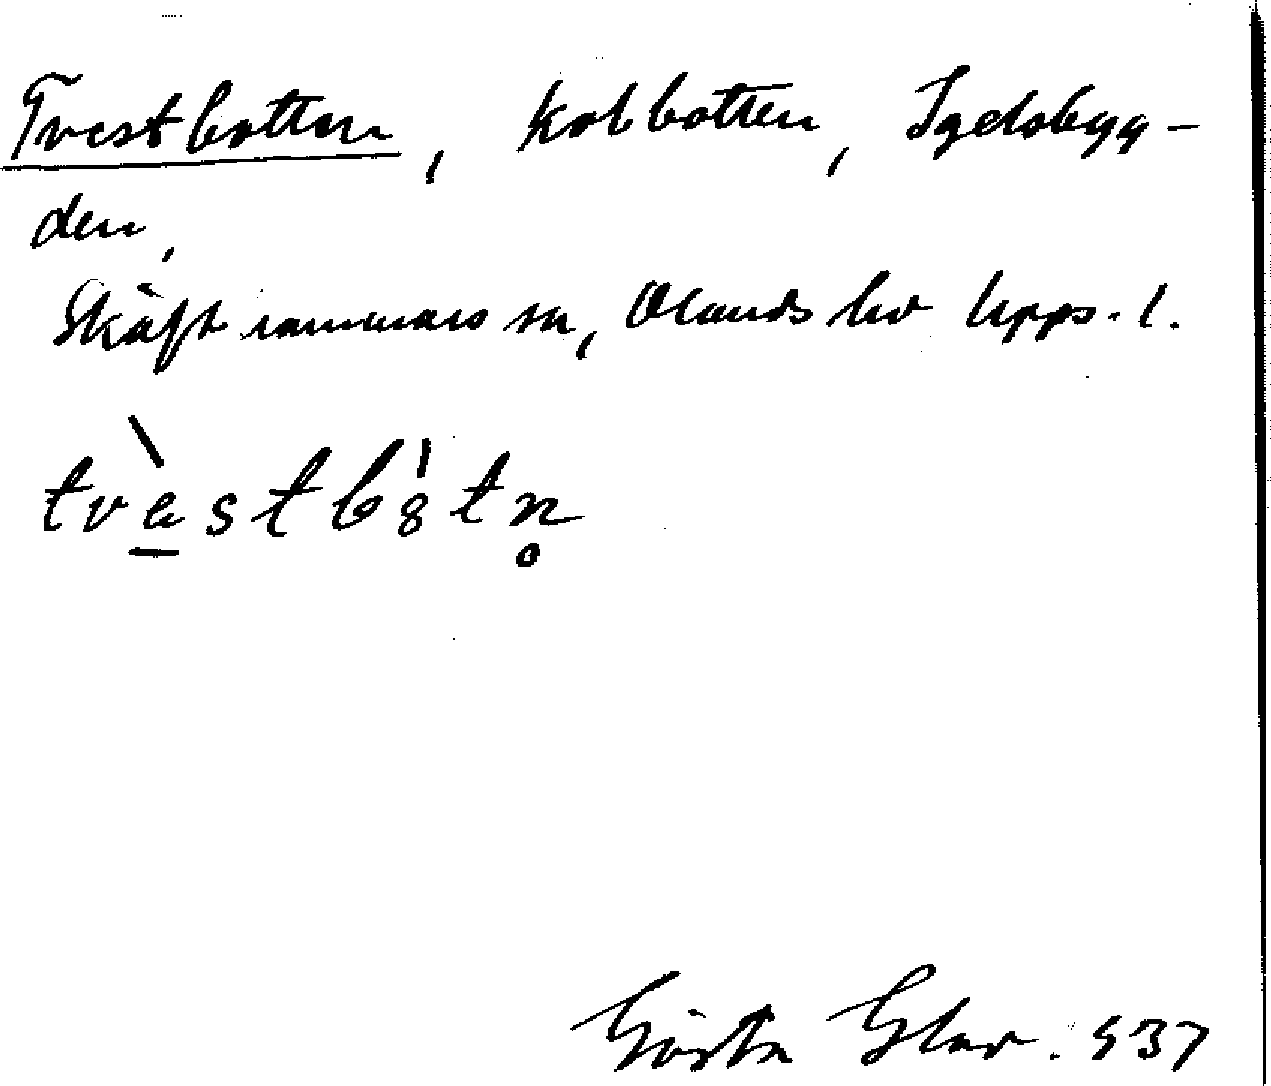 Tvestbotten, kolbotten, Igelsbyg-
den,
Skäfthammars sn, Olands hd Upps. l.
tvèstb8tn̥
Gösta 937